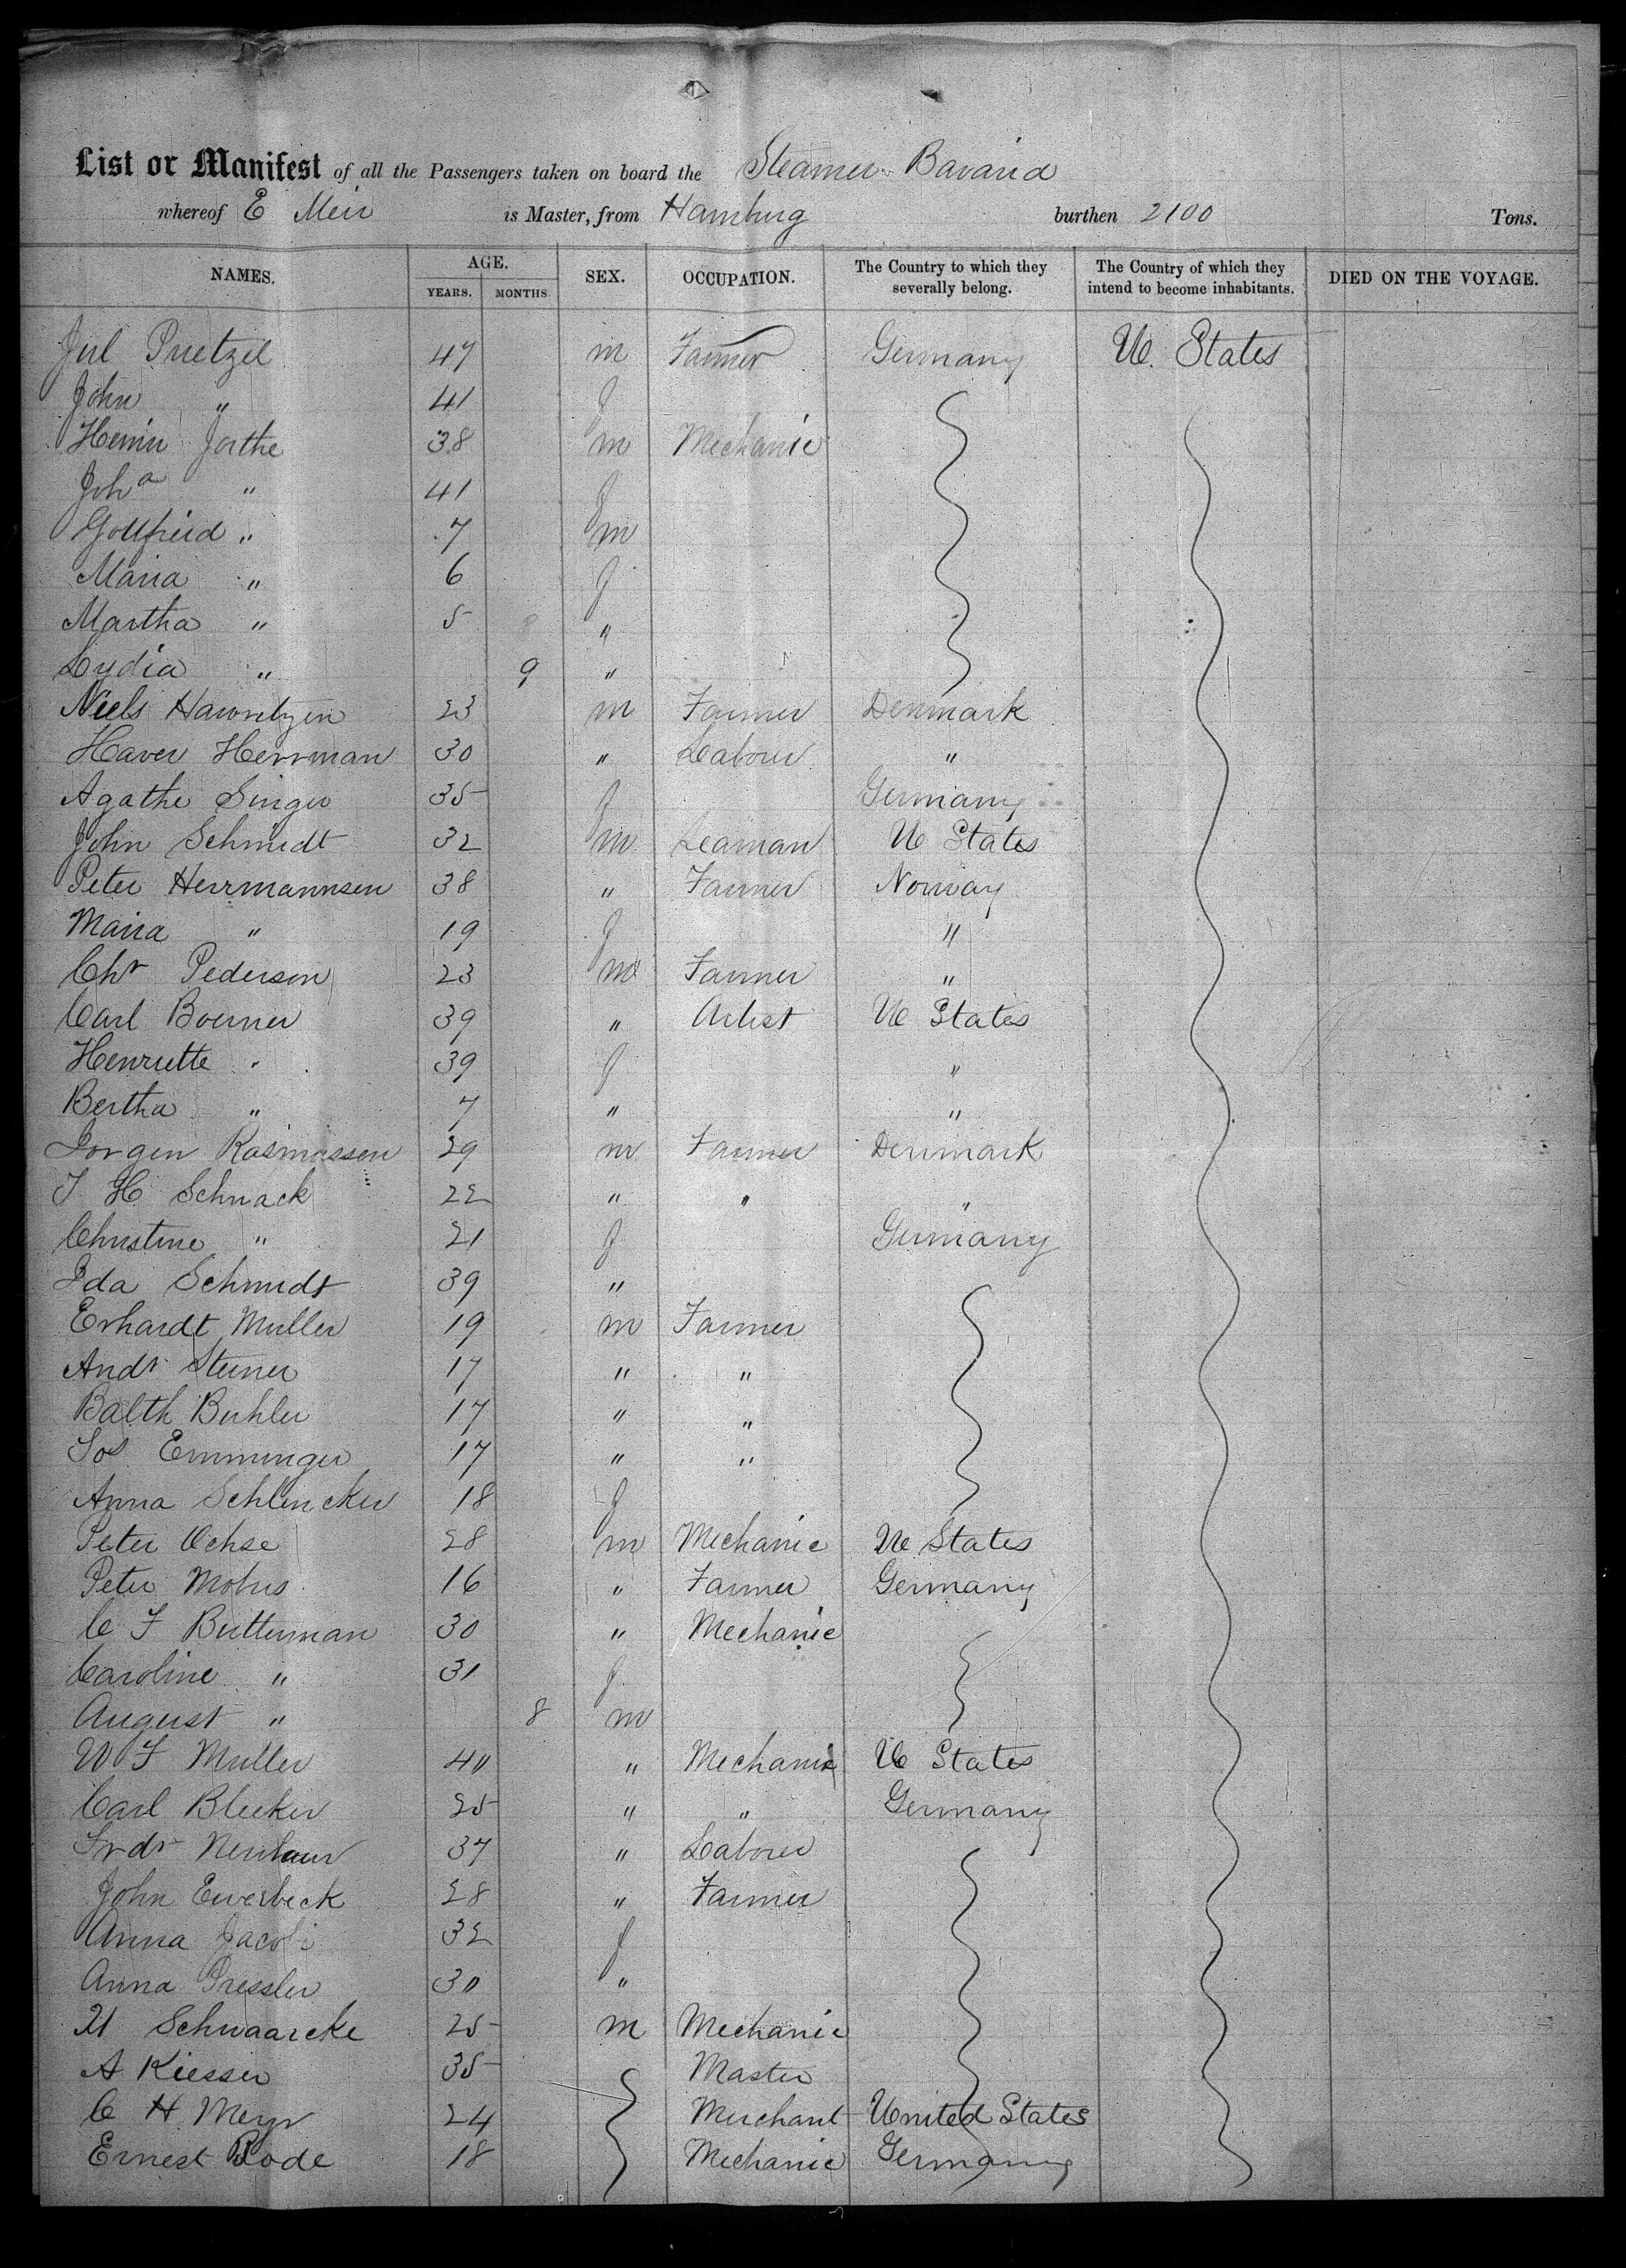 List or Manifest of all the Passengers taken on board the Steamer Bavaria
whereof E Meir is Master, from Hamburg burthen 2100 Tons.
NAMES. AGE. YEARS. MONTHS SEX. OCCUPATION. The Country to which they severally belong. The Country of which they intend to become inhabitants. DIED ON THE VOYAGE.
Jul Pretzel 47 m Farmer Germany U. States
John " 41 f
Henin Jorthe 38 m Mechanic
Joha " 41 f
Gottfried " 7 m
Maria " 6 f
Martha " 5 "
Lydia " 9 "
Niels 23 m Farmer Denmark
Haver Herrman 30 " Labour "
Agathe Singer 35 f Germany
John Schmidt 32 m Seaman U States
Peter Herrmannsen 38 " Farmer Norway
Maria " 19 f "
Chr Pederson 23 m Farmer "
Carl Boerner 39 " Artist U States
Henriette " 39 f "
Bertha " 7 " "
Jorgen Rasmussen 29 m Farmer Denmark
J H Schnack 22 " " "
Christine " 21 f Germany
Ida Schmidt 39 "
Erhardt Muller 19 m Farmer
Andr Steiner 17 " "
Balth Buhler 17 " "
Jos Emminger 17 " "
Anna Schlencker 18 f
Peter Ochse 28 m Mechanic U States
Peter Mohrs 16 " Farmer Germany
C F Butterman 30 " Mechanic
Caroline " 31 f
August " 8 m
W F Muller 40 " Mechanic U States
Carl Blecker 25 " " Germany
Frdr 37 " Labour
John Ewerbeck 28 " Farmer
Anna Jacobi 32 f
Anna Pressler 30 "
H Schwaarcke 25 m Mechanic
A Kiesser 35 Master
C H Meyr 24 Merchant United States
Ernest Bode 18 Mechanic Germany